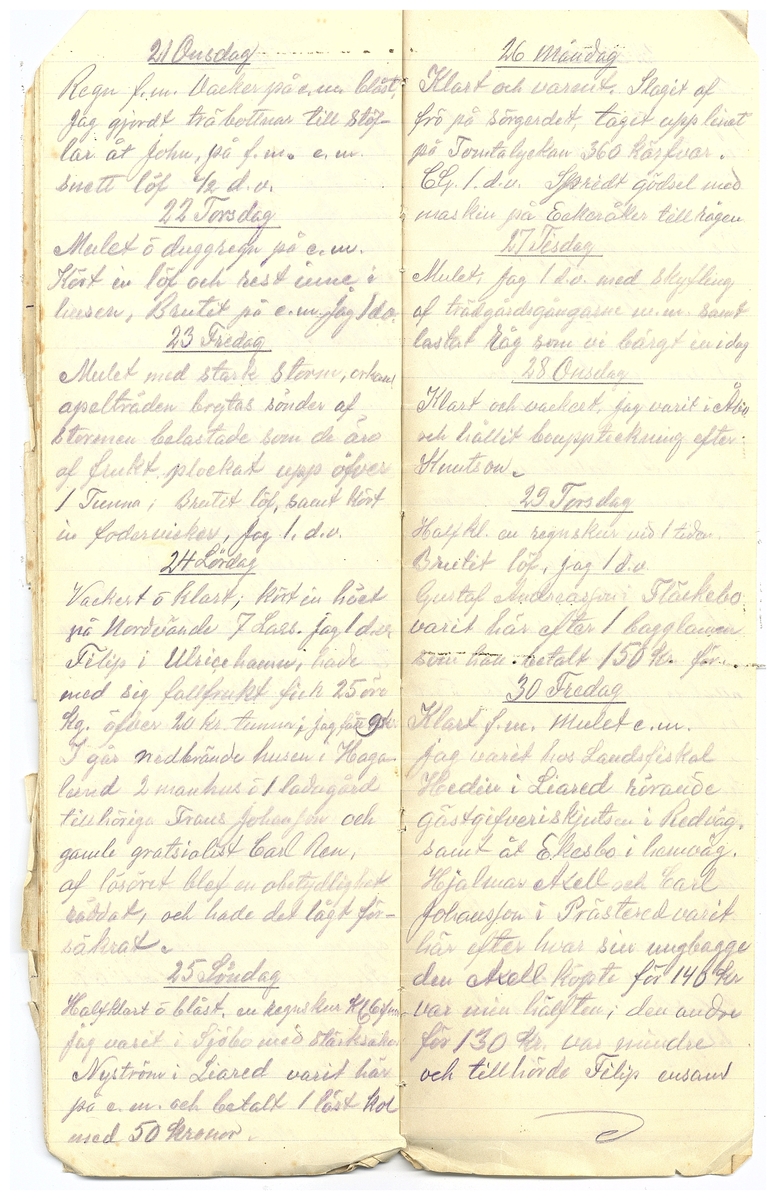 21 Onsdag
Regn f.m. Vacker på e.m. blåst,
Jag gjordt träbottnar till stöf-
lar åt John, på f.m. e.m.
snett löf 1/2 d.v.
22 Torsdag
Mulet ö duggregn på e.m.
Kört in löf och rest inne i
linsen, Brutit på e.m. Jag 1 d.v.
23 Fredag
Mulet med stark storm,
apelträden brytas sönder af
stormen belastade som de äro
af frukt, plockat upp öfver
1 Tunna; Brutit löf, samt kört
in fodervicker, jag 1. d.v.
24 Lördag
Vackert ö klart; kört in höet
på Nordvände 7 Lass. jag 1 d.v.
Filip i Ulricehamn, hade
med sig fallfrukt fick 25 öre
Kg. öfver 20 kr. tunna; jag
I går nedbrände husen i Haga-
lund 2 manhus ö 1 ladugård
tillhöriga Frans Johansson och
gamle gratsialist Carl Ren,
af lösöret blef en obetydlighet
räddat, och hade det lågt för-
säkrat.
25 Söndag
Halfklart ö blåst, en regnskur Kl 6 e.m.
jag varit i Sjöbo med
Nyström i Liared varit här
på e.m. och betalt 1 läst kol
med 50 kronor.
26 Måndag
Klart och varmt. Slagit af
frö på sörgerdet, tagit upp linet
på Tomtalyckan 360 kärfvar.
1. d.v. Spredt gödsel med
maskin på Eckeråker till rågen
27 Tisdag
Mulet, jag 1 d.v. med skyfling
af trädgårdsgångarne m.m. samt
lastat Råg som vi bärgt in idag
28 Onsdag
Klart och vackert, jag varit i
och hållit bouppteckning efter
Knutson.
29 Torsdag
Halfkl. en regnskur vid 1 tiden.
Brutit löf, jag 1 d.v.
Gustaf Andreasson i Fläckebo
varit här efter 1 bagglamm
som han betalt 150 Kr. för.
30 Fredag
Klart f.m. Mulet e.m.
Jag varit hos Landsfiskal
Hedin i Liared rörande
gästgifveriskjutsen i Redväg.
samt åt Ekesbo i hemväg.
Hjalmar Axell och Carl
Johansson i Prästered varit
här efter hvar sin ungbagge
den Axell köpte för 140 Kr
var min hälften; den andre
för 130 Kr. var mindre
och tillhörde Filip ensam